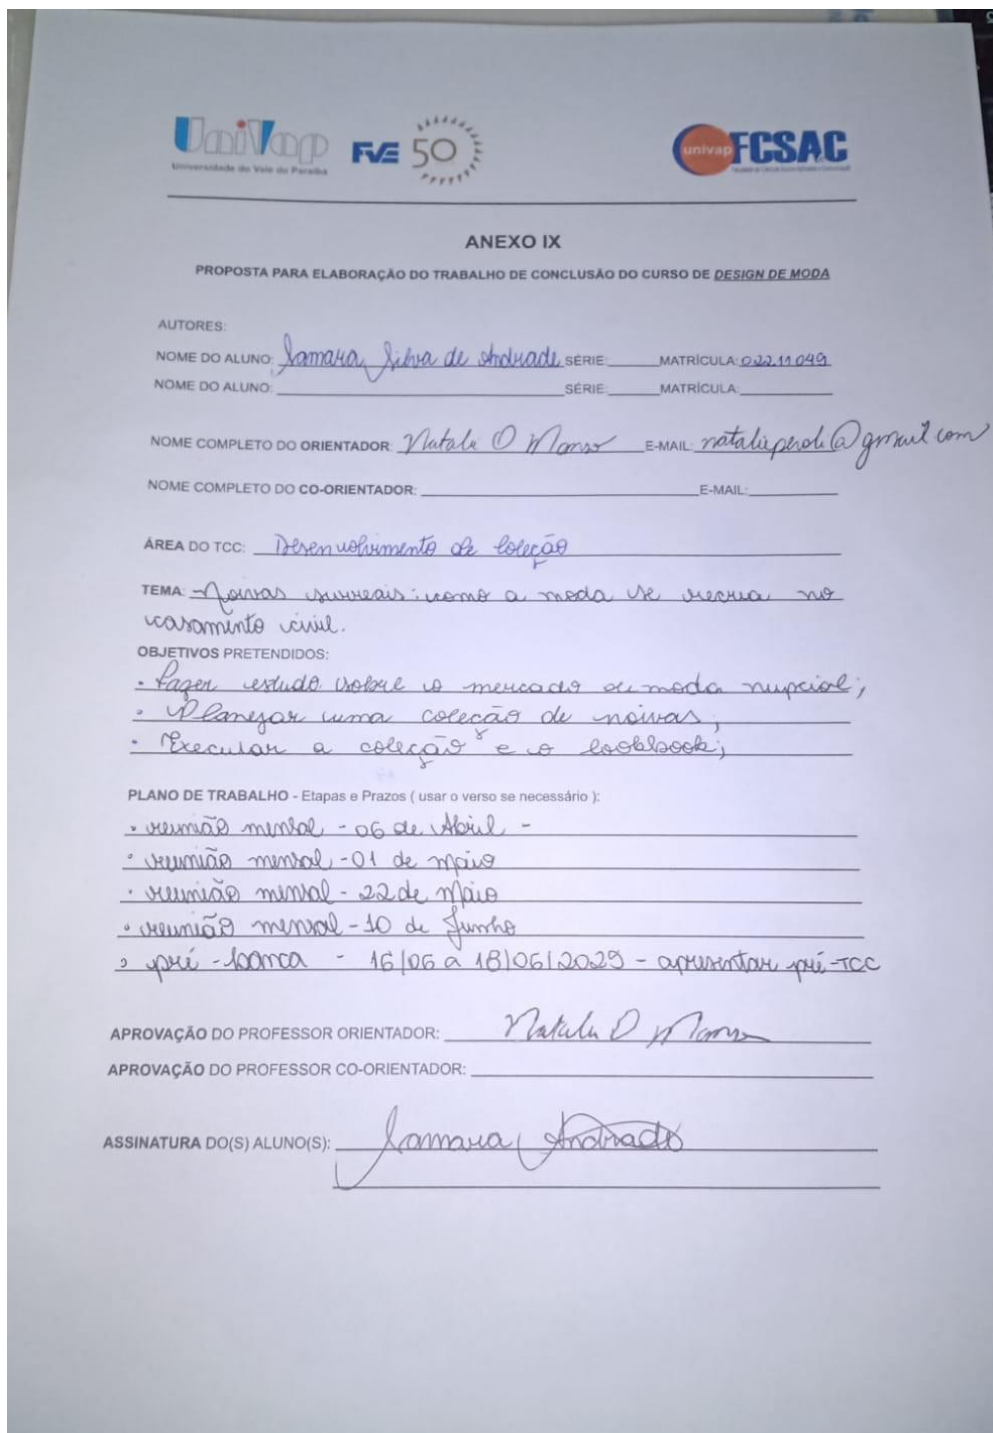 UniVap
Universidade do Vale do Paraíba
FVE 50
univap FCSAC
ANEXO IX
PROPOSTA PARA ELABORAÇÃO DO TRABALHO DE CONCLUSÃO DO CURSO DE DESIGN DE MODA
AUTORES:
NOME DO ALUNO: Samara Silva de Andrade SÉRIE: MATRÍCULA: 022.11.049
NOME DO ALUNO: SÉRIE: MATRÍCULA:
NOME COMPLETO DO ORIENTADOR: E-MAIL: @gmail.com
NOME COMPLETO DO CO-ORIENTADOR: E-MAIL:
ÁREA DO TCC: Desenvolvimento de Coleção
TEMA: Noivas surreais: como a moda se recria no
casamento civil.
OBJETIVOS PRETENDIDOS:
• Fazer estudo sobre o mercado de moda nupcial;
• Planejar uma coleção de noivas;
• Executar a coleção e o lookbook;
PLANO DE TRABALHO - Etapas e Prazos ( usar o verso se necessário ):
• reunião mensal - 06 de Abril -
• reunião mensal - 01 de maio
• reunião mensal - 22 de Maio
• reunião mensal - 10 de Junho
• pré-banca - 16/06 a 18/06/ - apresentar pré-TCC
APROVAÇÃO DO PROFESSOR ORIENTADOR:
APROVAÇÃO DO PROFESSOR CO-ORIENTADOR:
ASSINATURA DO(S) ALUNO(S): Samara Andrade